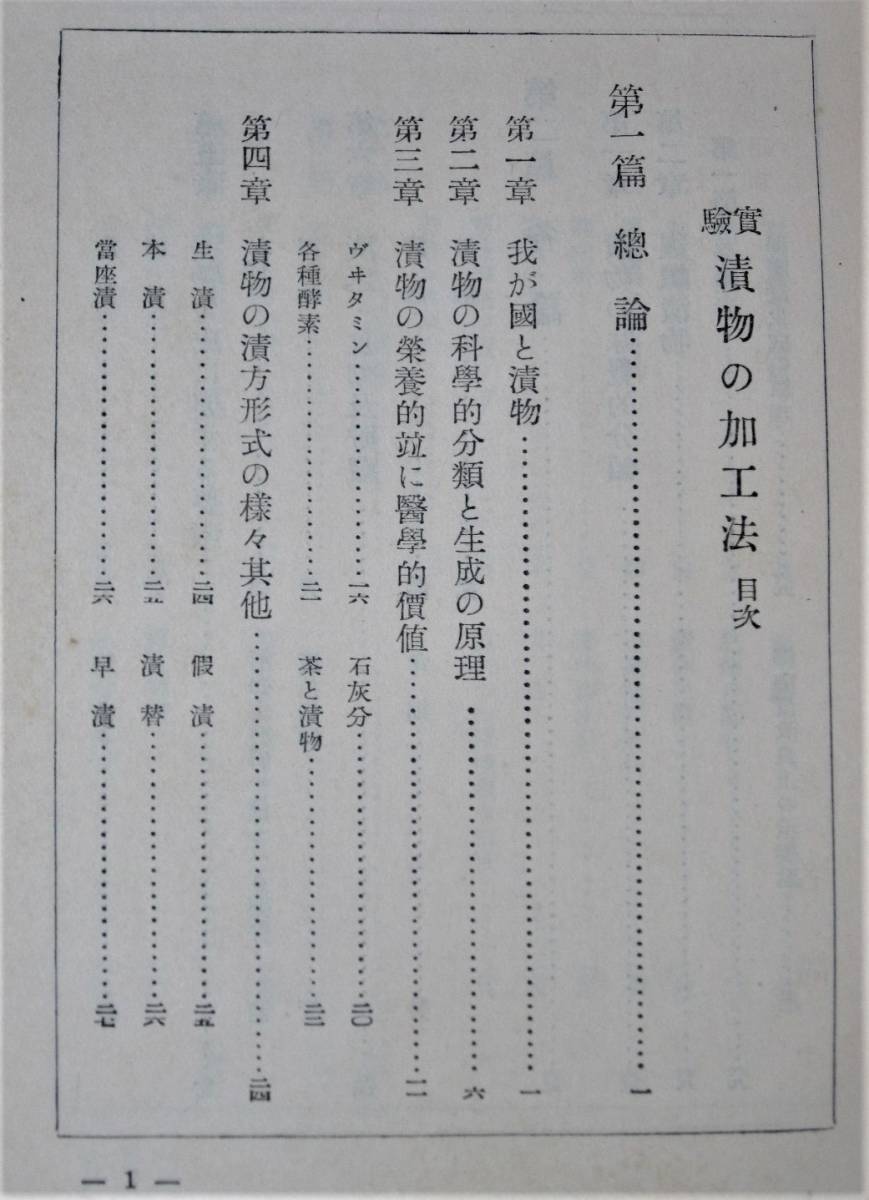 實驗 漬物の加工法 目次
第一篇 總論……一
第一章 我が國と漬物……一
第二章 漬物の科學的分類と生成の原理……六
第三章 漬物の榮養的竝に醫學的價値……一一
ヴヰタミン……一六 石灰分……二〇
各種酵素……二一 茶と漬物……二三
第四章 漬物の漬方形式の樣々其他……二四
生漬……二四 假漬……二五
本漬……二五 漬替……二六
當座漬……二六 早漬……二七
— 1 —